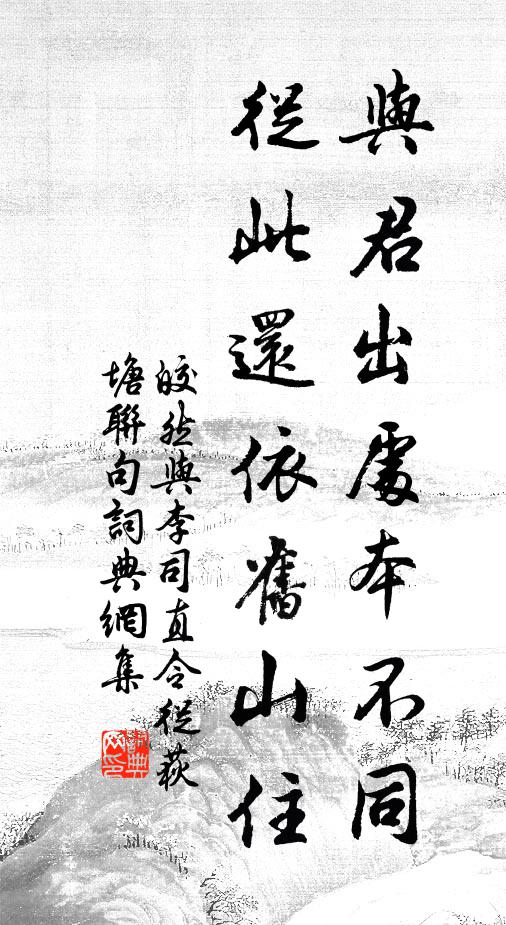 與君出處本不同
從此還依舊山住
皎然與李司直令從荻
塘聯句詞典網集